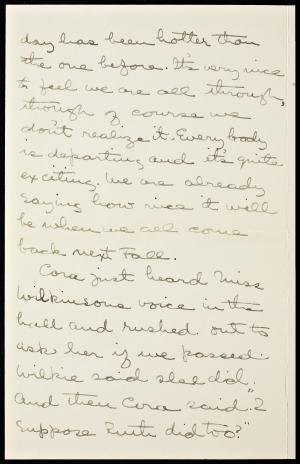 day has been hotter than
the one before. It's very nice
to feel we are all through,
though of course we
don't realize it. Everybody
is departing and it's quite
exciting. We are already
saying how nice it will
be when we all come
back next Fall.
Cora just heard Miss
Wilkinsons voice in the
hall and rushed out to
ask her if we passed.
Wilkie said she did,
and then Cora said "I
suppose Ruth did too?"